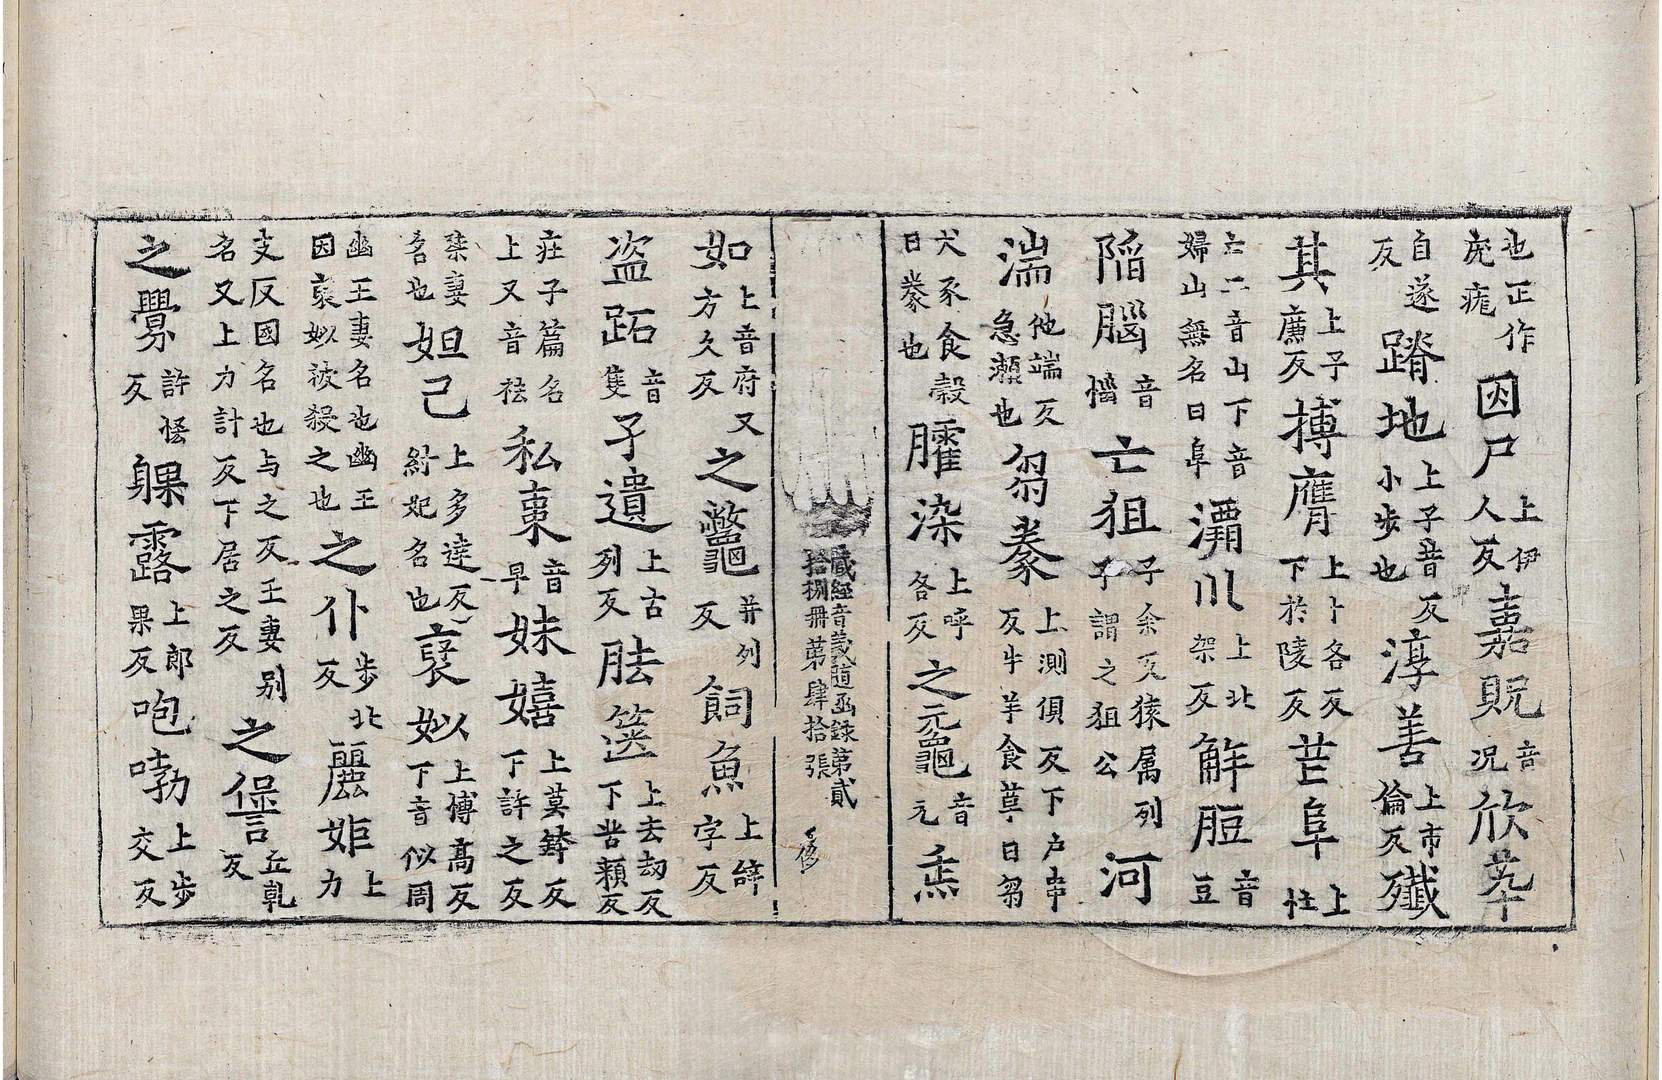 也正作虎狵因尸上伊人反嘉貺音況欣͏
自遂反蹐地上子音反小步也淳善上市倫反殲
其上子廉反搏膺上卜各反下於陵反芒阜上
亡二音山下音婦山無名曰阜灞川上北架反觧脰音豆
陷腦音惱亡狙子余反猿属列子謂之狙公河
湍他端反急瀬也芻豢上測俱反下户串反牛羊食草曰芻
犬豕食穀曰豢也臛染上呼各反之黿音元
如上音府又方久反之鼈并列反飼魚上辝字反
盗跖音隻孑遺上古列反胠篋上去刼反下苦頬反
荘子篇名上又音祛私棗音早妹嬉上莫鉢反下許之反
桀妻名也妲己上多達反紂妃名也褒姒上博高反下音似周
幽王妻名也幽王因褒姒被殺之也之仆步北反麗姫上力
支反國名也与之反王妻别名又上力計反下居之反之諐丘乹反
之舋許恡反躶露上郎果反咆哮上步交反
藏經音義随函録第貳拾捌册第肆拾張